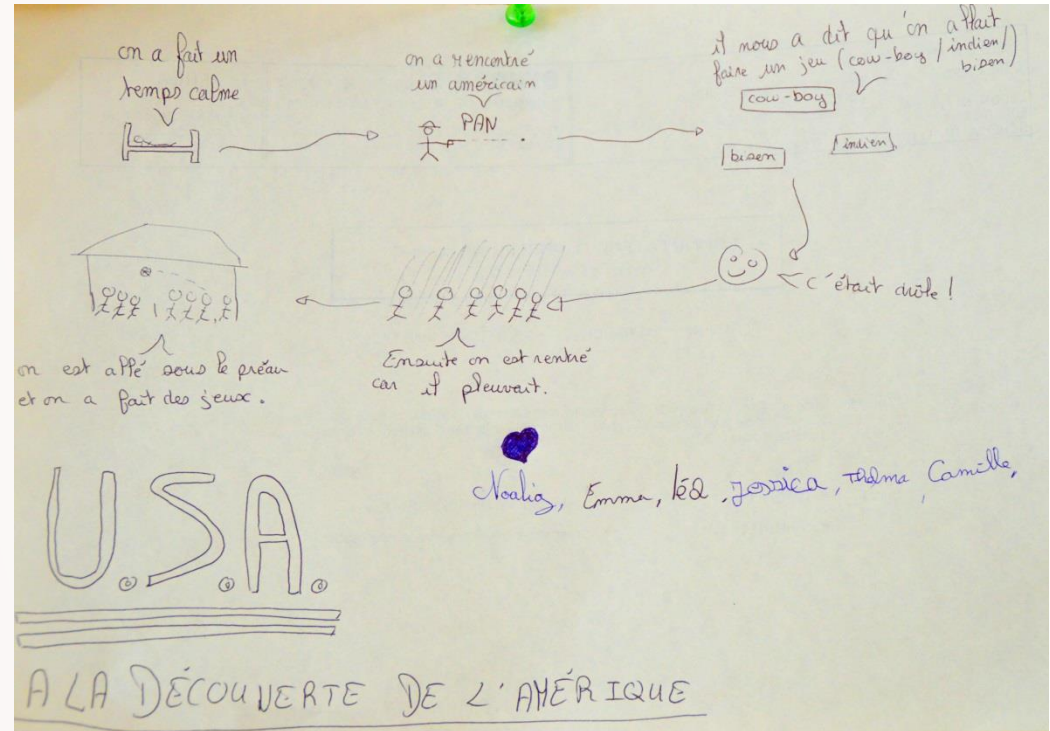 on a fait un
temps calme
on a rencontré
un américain
PAN
il nous a dit qu'on allait
faire un jeu (cow-boy / indien /
bison)
cow-boy
indien
bison
c'était drôle !
Ensuite on est rentré
car il pleuvait.
on est allé sous le préau
et on a fait des jeux.
Noalig, Emma, léa, Jessica, Thelma, Camille,
U.S.A.
A LA DÉCOUVERTE DE L'AMÉRIQUE